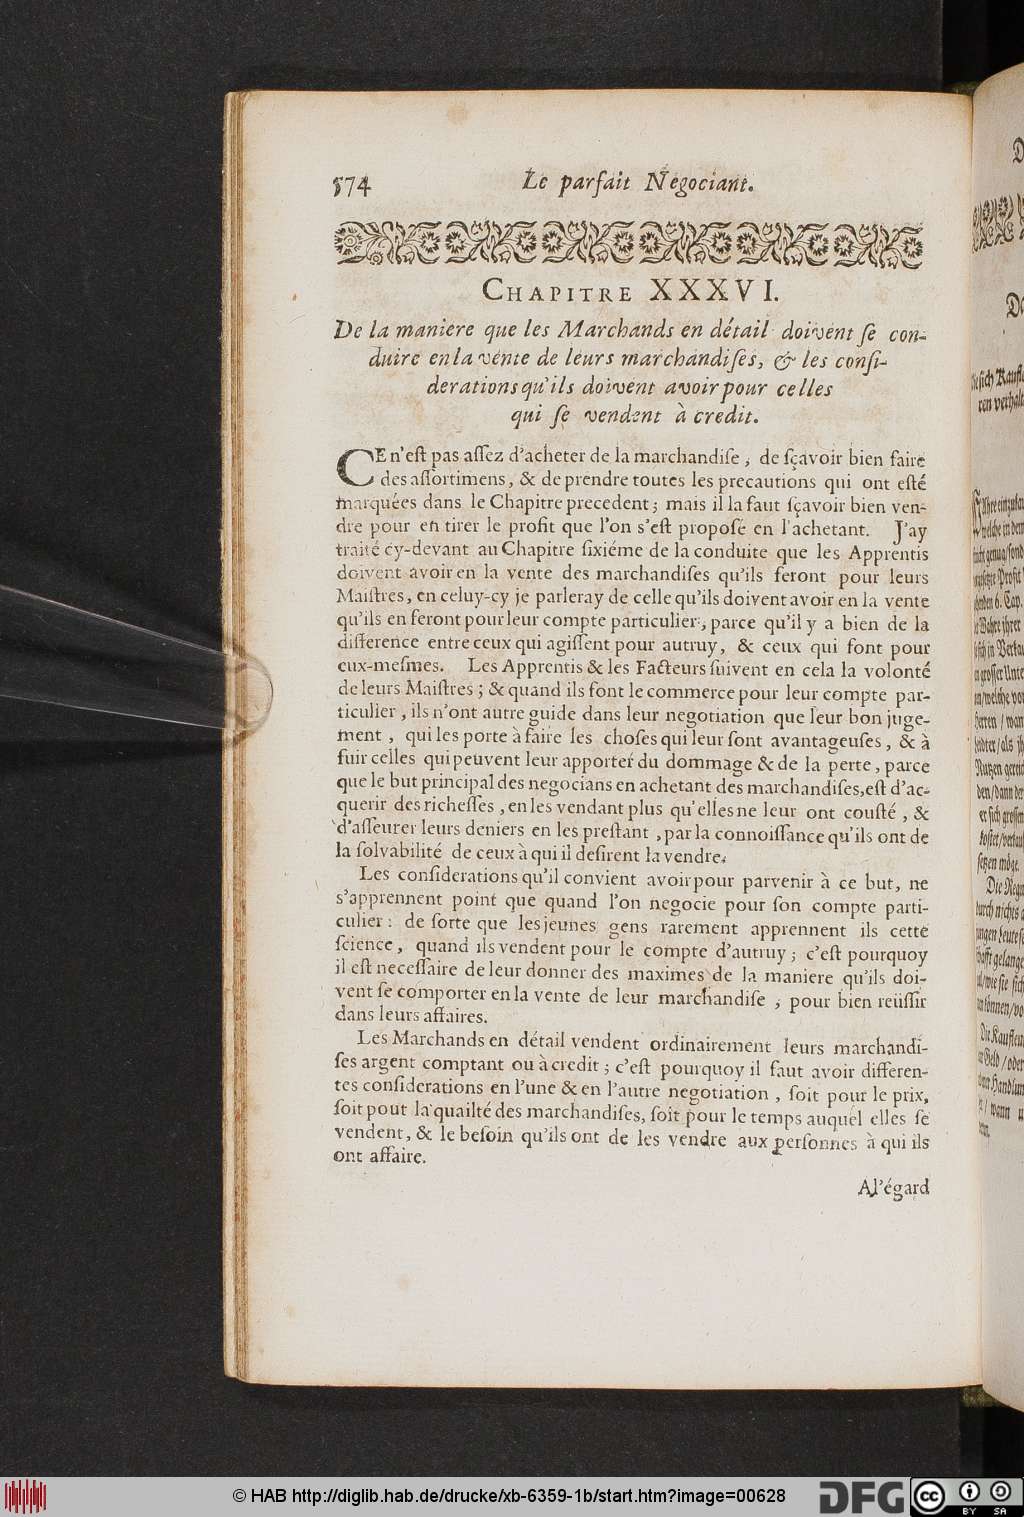 574 Le parfait Negociant.
CHAPITRE XXXVI.
De la maniere que les Marchands en détail doivent ſe con-
duire en la vente de leurs marchandiſes, & les conſi-
derations qu'ils doivent avoir pour celles
qui ſe vendent à credit.
CE n'eſt pas aſſez d'acheter de la marchandiſe, de sçavoir bien faire
des aſſortimens, & de prendre toutes les precautions qui ont eſté
marquées dans le Chapitre precedent; mais il la faut ſçavoir bien ven-
dre pour en tirer le profit que l'on s'eſt propoſé en l'achetant. J'ay
traité cy-devant au Chapitre ſixiéme de la conduite que les Apprentis
doivent avoir en la vente des marchandiſes qu'ils feront pour leurs
Maiſtres, en celuy-cy je parleray de celle qu'ils doivent avoir en la vente
qu'ils en feront pour leur compte particulier, parce qu'il y a bien de la
difference entre ceux qui agiſſent pour autruy, & ceux qui font pour
eux-meſmes. Les Apprentis & les Facteurs ſuivent en cela la volonté
de leurs Maiſtres; & quand ils font le commerce pour leur compte par-
ticulier, ils n'ont autre guide dans leur negotiation que leur bon juge-
ment, qui les porte à faire les choſes qui leur ſont avantageuſes, & à
fuir celles qui peuvent leur apporter du dommage & de la perte, parce
que le but principal des negocians en achetant des marchandiſes, eſt d'ac-
querir des richeſſes, en les vendant plus qu'elles ne leur ont couſté, &
d'aſſeurer leurs deniers en les preſtant, par la connoiſſance qu'ils ont de
la ſolvabilité de ceux à qui il deſirent la vendre.
Les conſiderations qu'il convient avoir pour parvenir à ce but, ne
s'apprennent point que quand l'on negocie pour ſon compte parti-
culier: de ſorte que les jeunes gens rarement apprennent ils cette
ſcience, quand ils vendent pour le compte d'autruy; c'eſt pourquoy
il eſt neceſſaire de leur donner des maximes de la maniere qu'ils doi-
vent ſe comporter en la vente de leur marchandiſe, pour bien reüſſir
dans leurs affaires.
Les Marchands en détail vendent ordinairement leurs marchandi-
ſes argent comptant ou à credit; c'eſt pourquoy il faut avoir differen-
tes conſiderations en l'une & en l'autre negotiation, ſoit pour le prix,
ſoit pout la quailté des marchandiſes, ſoit pour le temps auquel elles ſe
vendent, & le beſoin qu'ils ont de les vendre aux perſonnes à qui ils
ont affaire.
Al'égard
© HAB http://diglib.hab.de/drucke/xb-6359-1b/start.htm?image=00628
DFG
cc BY SA